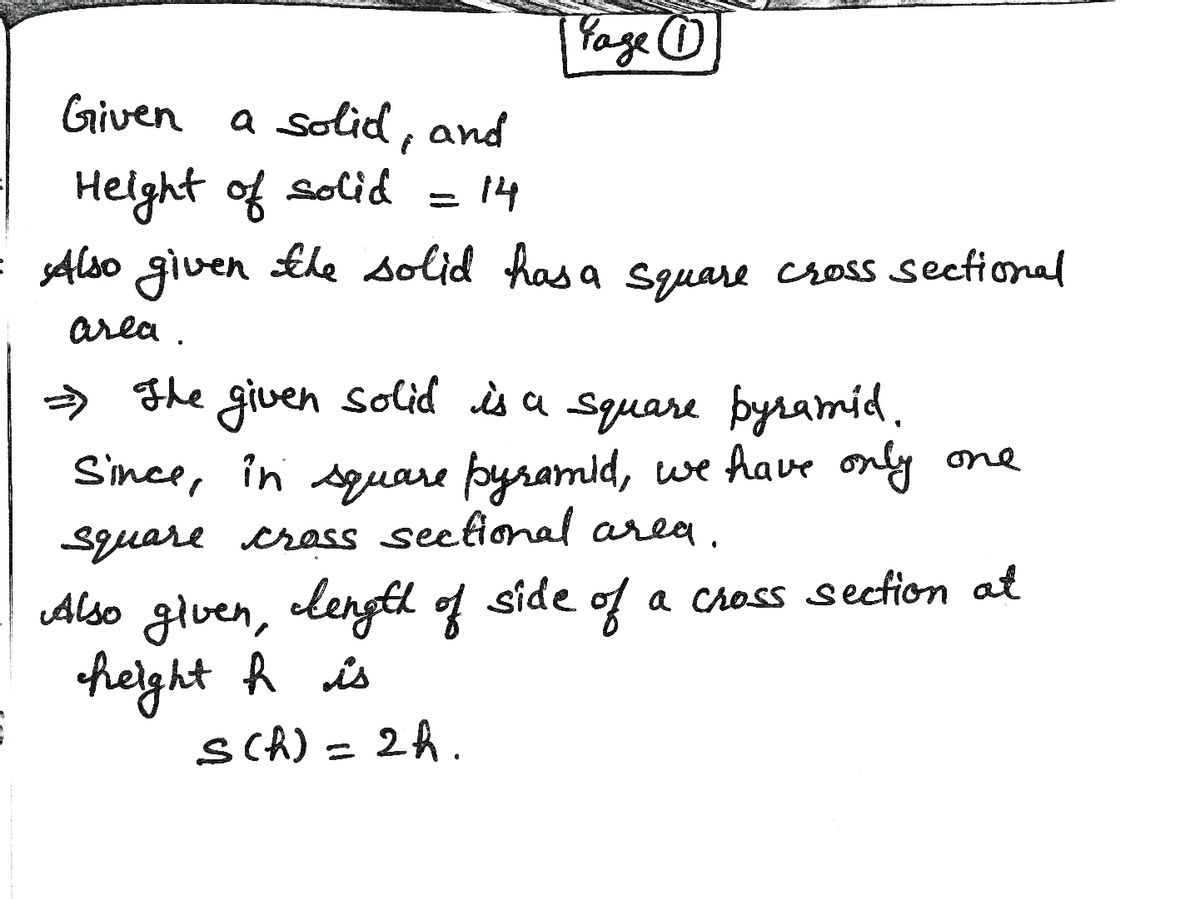 Page ①
Given a solid, and
Height of solid = 14
Also given the solid has a square cross sectional
area.
⇒ The given solid is a square pyramid.
Since, in square pyramid, we have only one
square cross sectional area.
Also given, length of side of a cross section at
height h is
s(h) = 2h.